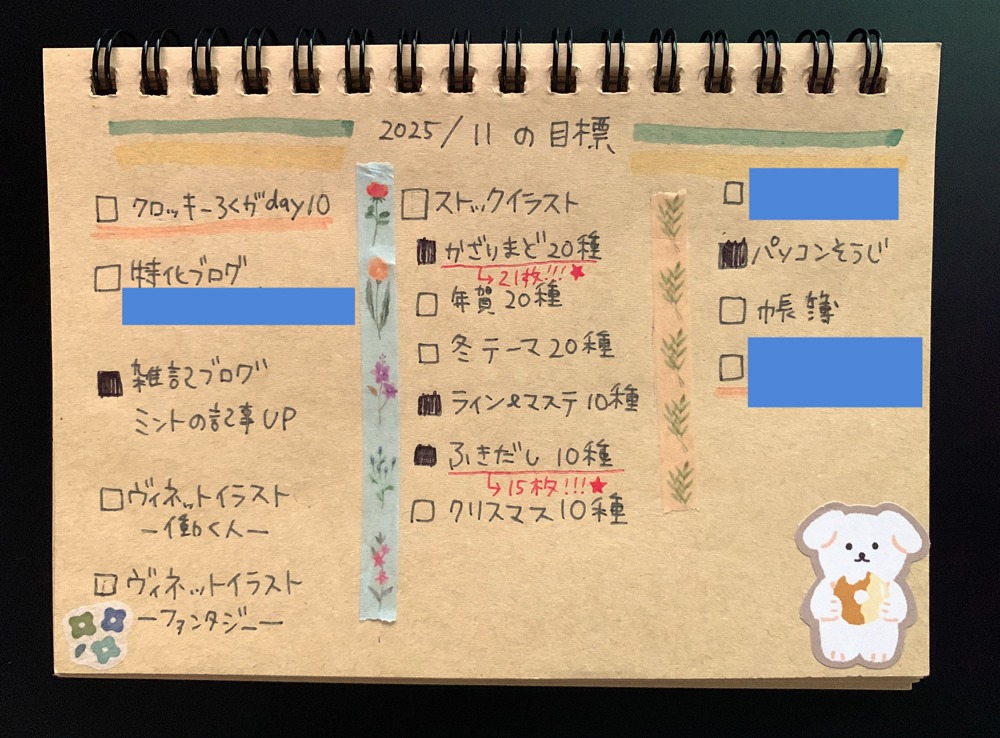 2025/11 の目標
□ クロッキーろくがday10
□ 特化ブログ
■ 雑記ブログ
ミントの記事UP
□ ヴィネットイラスト
ー働く人ー
□ ヴィネットイラスト
ーファンタジーー
□ ストックイラスト
■ かざりまど20種
↳21枚!!!★
□ 年賀20種
□ 冬テーマ20種
■ ライン&マステ10種
■ ふきだし 10種
↳15枚!!!★
□ クリスマス10種
□
■ パソコンそうじ
□ 帳簿
□